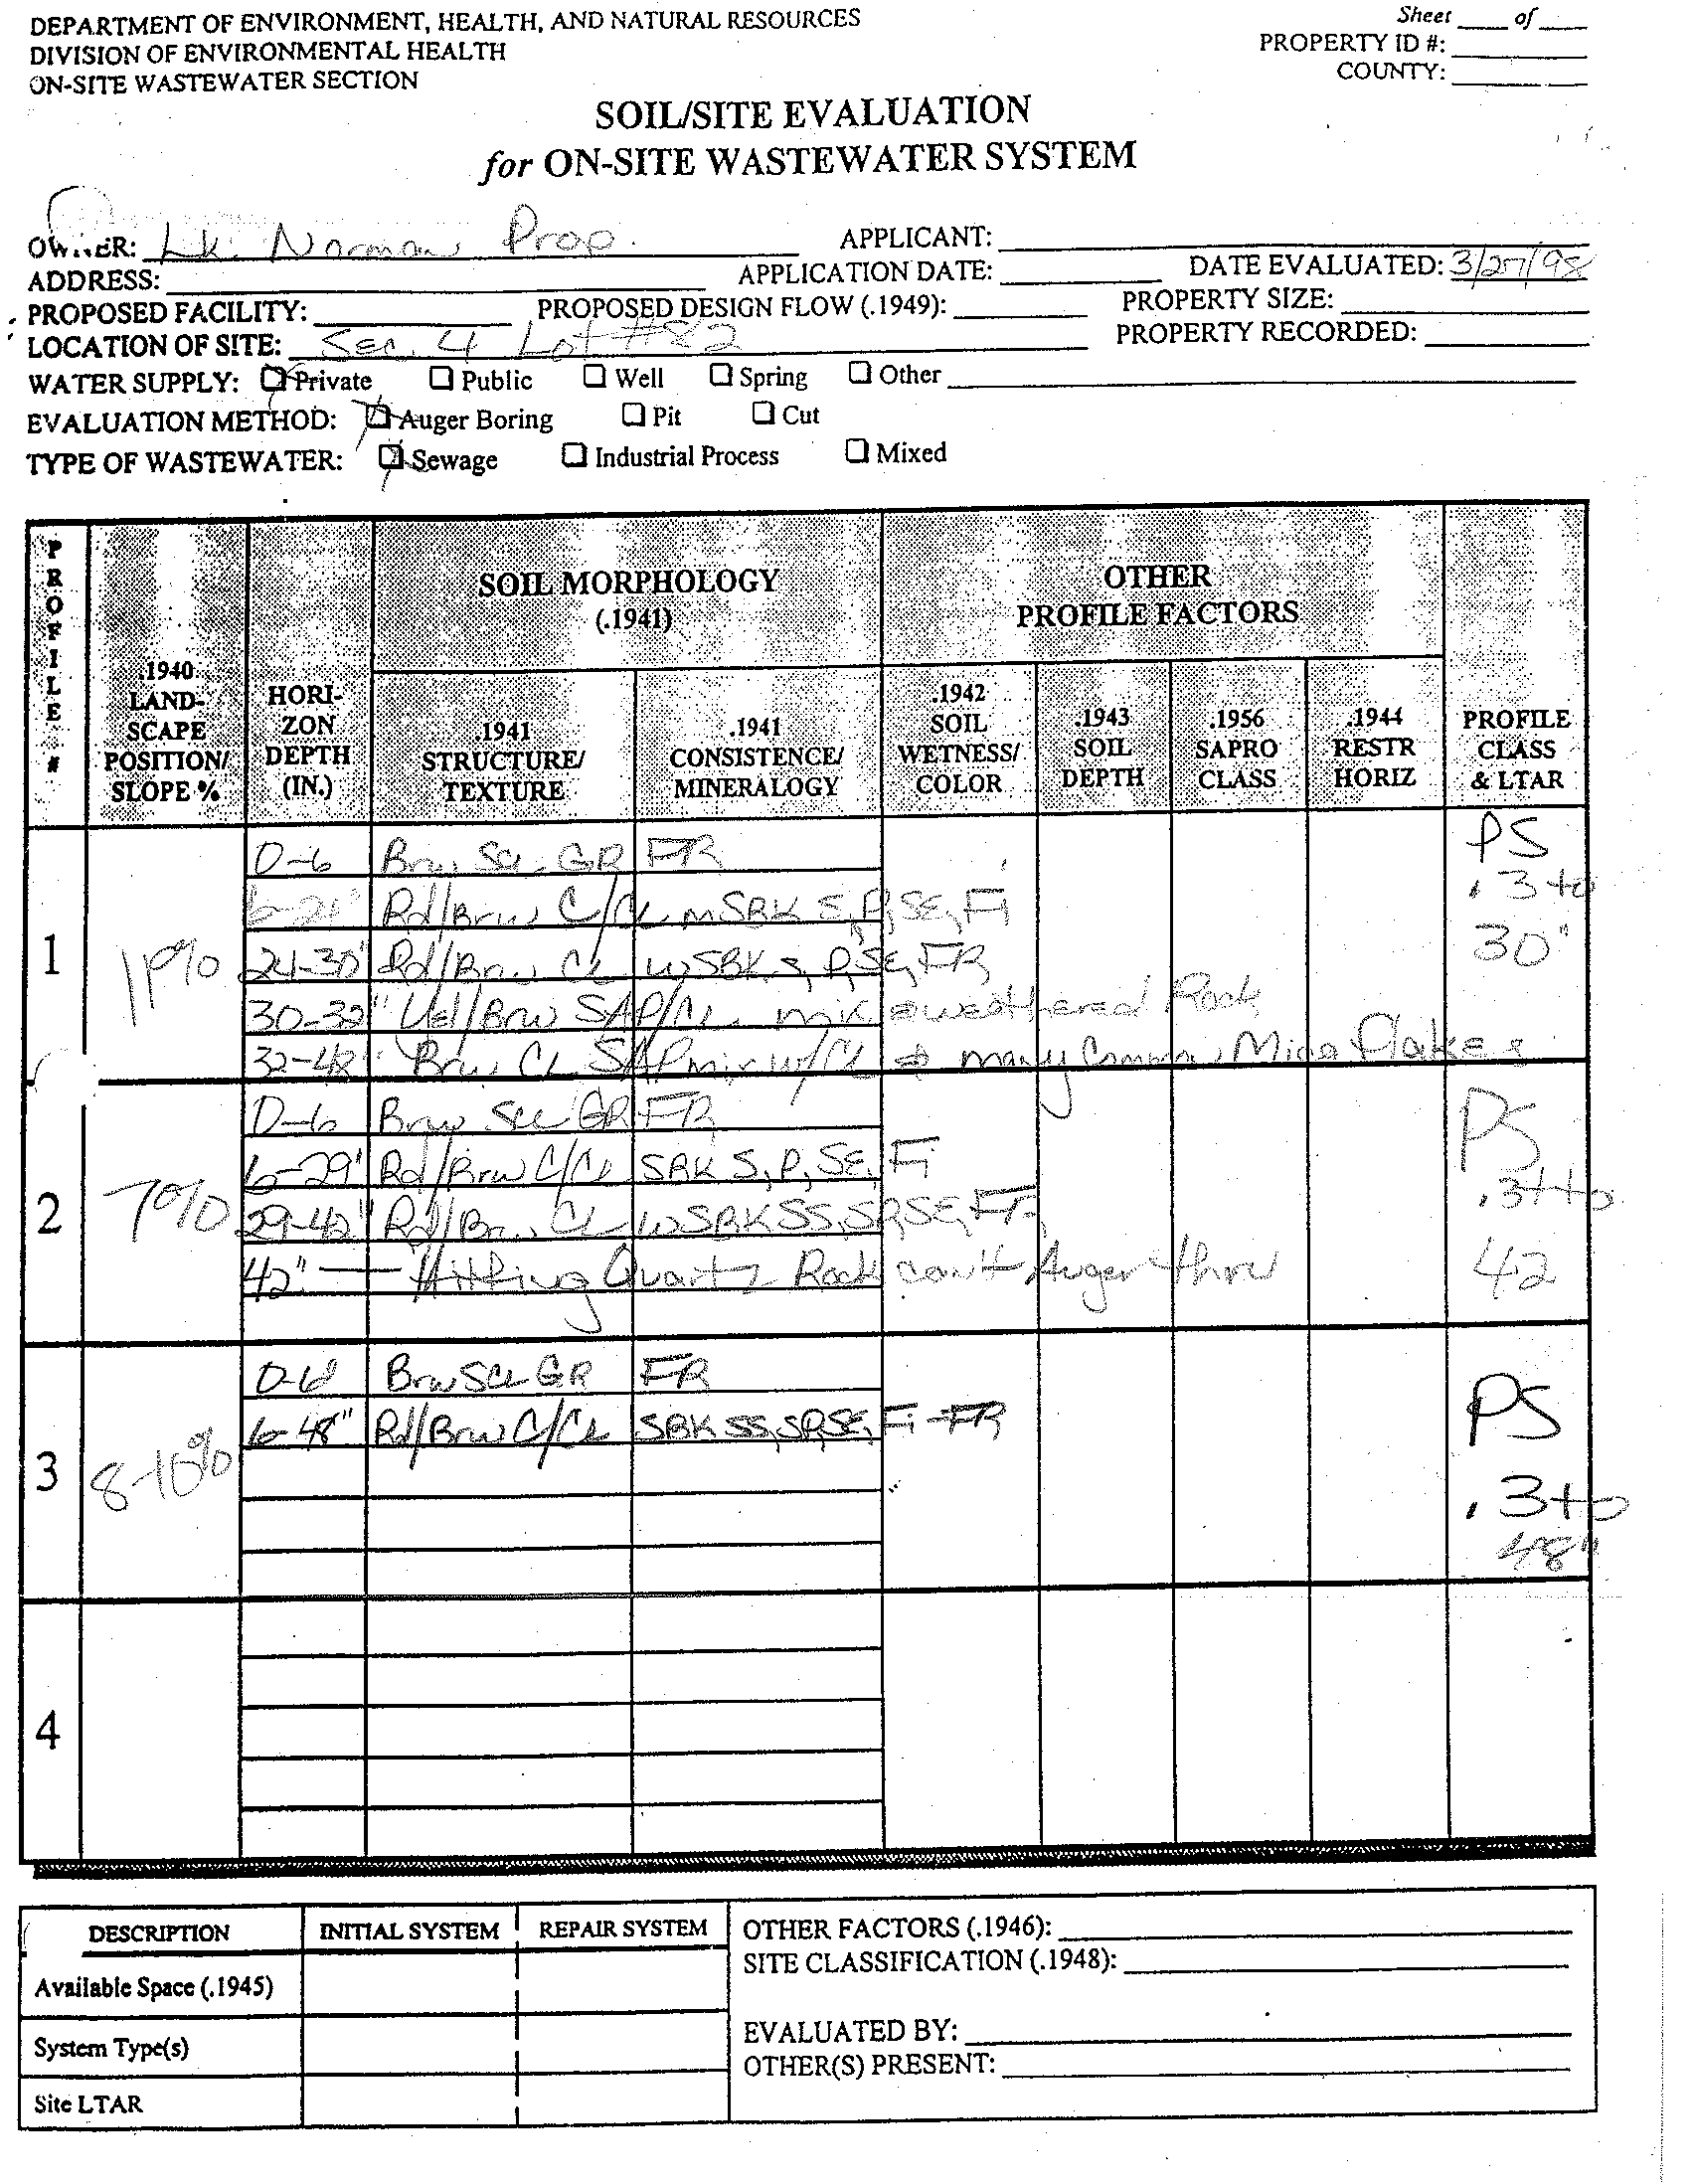 DEPARTMENT OF ENVIRONMENT, HEALTH, AND NATURAL RESOURCES
DIVISION OF ENVIRONMENTAL HEALTH
ON-SITE WASTEWATER SECTION
Sheet ____ of ____
PROPERTY ID #:
COUNTY:
SOIL/SITE EVALUATION
for ON-SITE WASTEWATER SYSTEM
OWNER: Lk. Norman Prop. APPLICANT:
ADDRESS: APPLICATION DATE: DATE EVALUATED: 3/27/98
PROPOSED FACILITY: PROPOSED DESIGN FLOW (.1949): PROPERTY SIZE:
LOCATION OF SITE: Sec. 4 Lot #82 PROPERTY RECORDED:
WATER SUPPLY: Private Public Well Spring Other
EVALUATION METHOD: Auger Boring Pit Cut
TYPE OF WASTEWATER: Sewage Industrial Process Mixed
PROFILE #
.1940 LAND-SCAPE POSITION/ SLOPE %
HORI-ZON DEPTH (IN.)
SOIL MORPHOLOGY (.1941)
.1941 STRUCTURE/ TEXTURE
.1941 CONSISTENCE/ MINERALOGY
OTHER PROFILE FACTORS
.1942 SOIL WETNESS/ COLOR
.1943 SOIL DEPTH
.1956 SAPRO CLASS
.1944 RESTR HORIZ
PROFILE CLASS & LTAR
1 11%
0-6 Brw SCL GR FR
6-21" Rd/Brw C/CL mSBK S, P, SE, Fi
21-30" Rd/Brw CL wSBK S, P, SE, FR
30-32" Yel/Brw SAP/CL mix weathered Rock
32-48" Brw CL SAP mix w/CL many Common Mica Flakes
PS .3 to 30"
2 7%
0-6 Brw SCL GR FR
6-29" Rd/Brw C/CL SBK S, P, SE, Fi
29-42" Rd/Brw CL wSBK SS, SP, SE, FR
42" — Hitting Quartz Rock can't Auger thru
PS .3 to 42
3 8-10%
0-6" Brw SCL GR FR
6-48" Rd/Brw C/CL SBK SS, SP, SE, Fi-FR
PS .3 to 48"
4
DESCRIPTION INITIAL SYSTEM REPAIR SYSTEM
Available Space (.1945)
System Type(s)
Site LTAR
OTHER FACTORS (.1946):
SITE CLASSIFICATION (.1948):
EVALUATED BY:
OTHER(S) PRESENT: